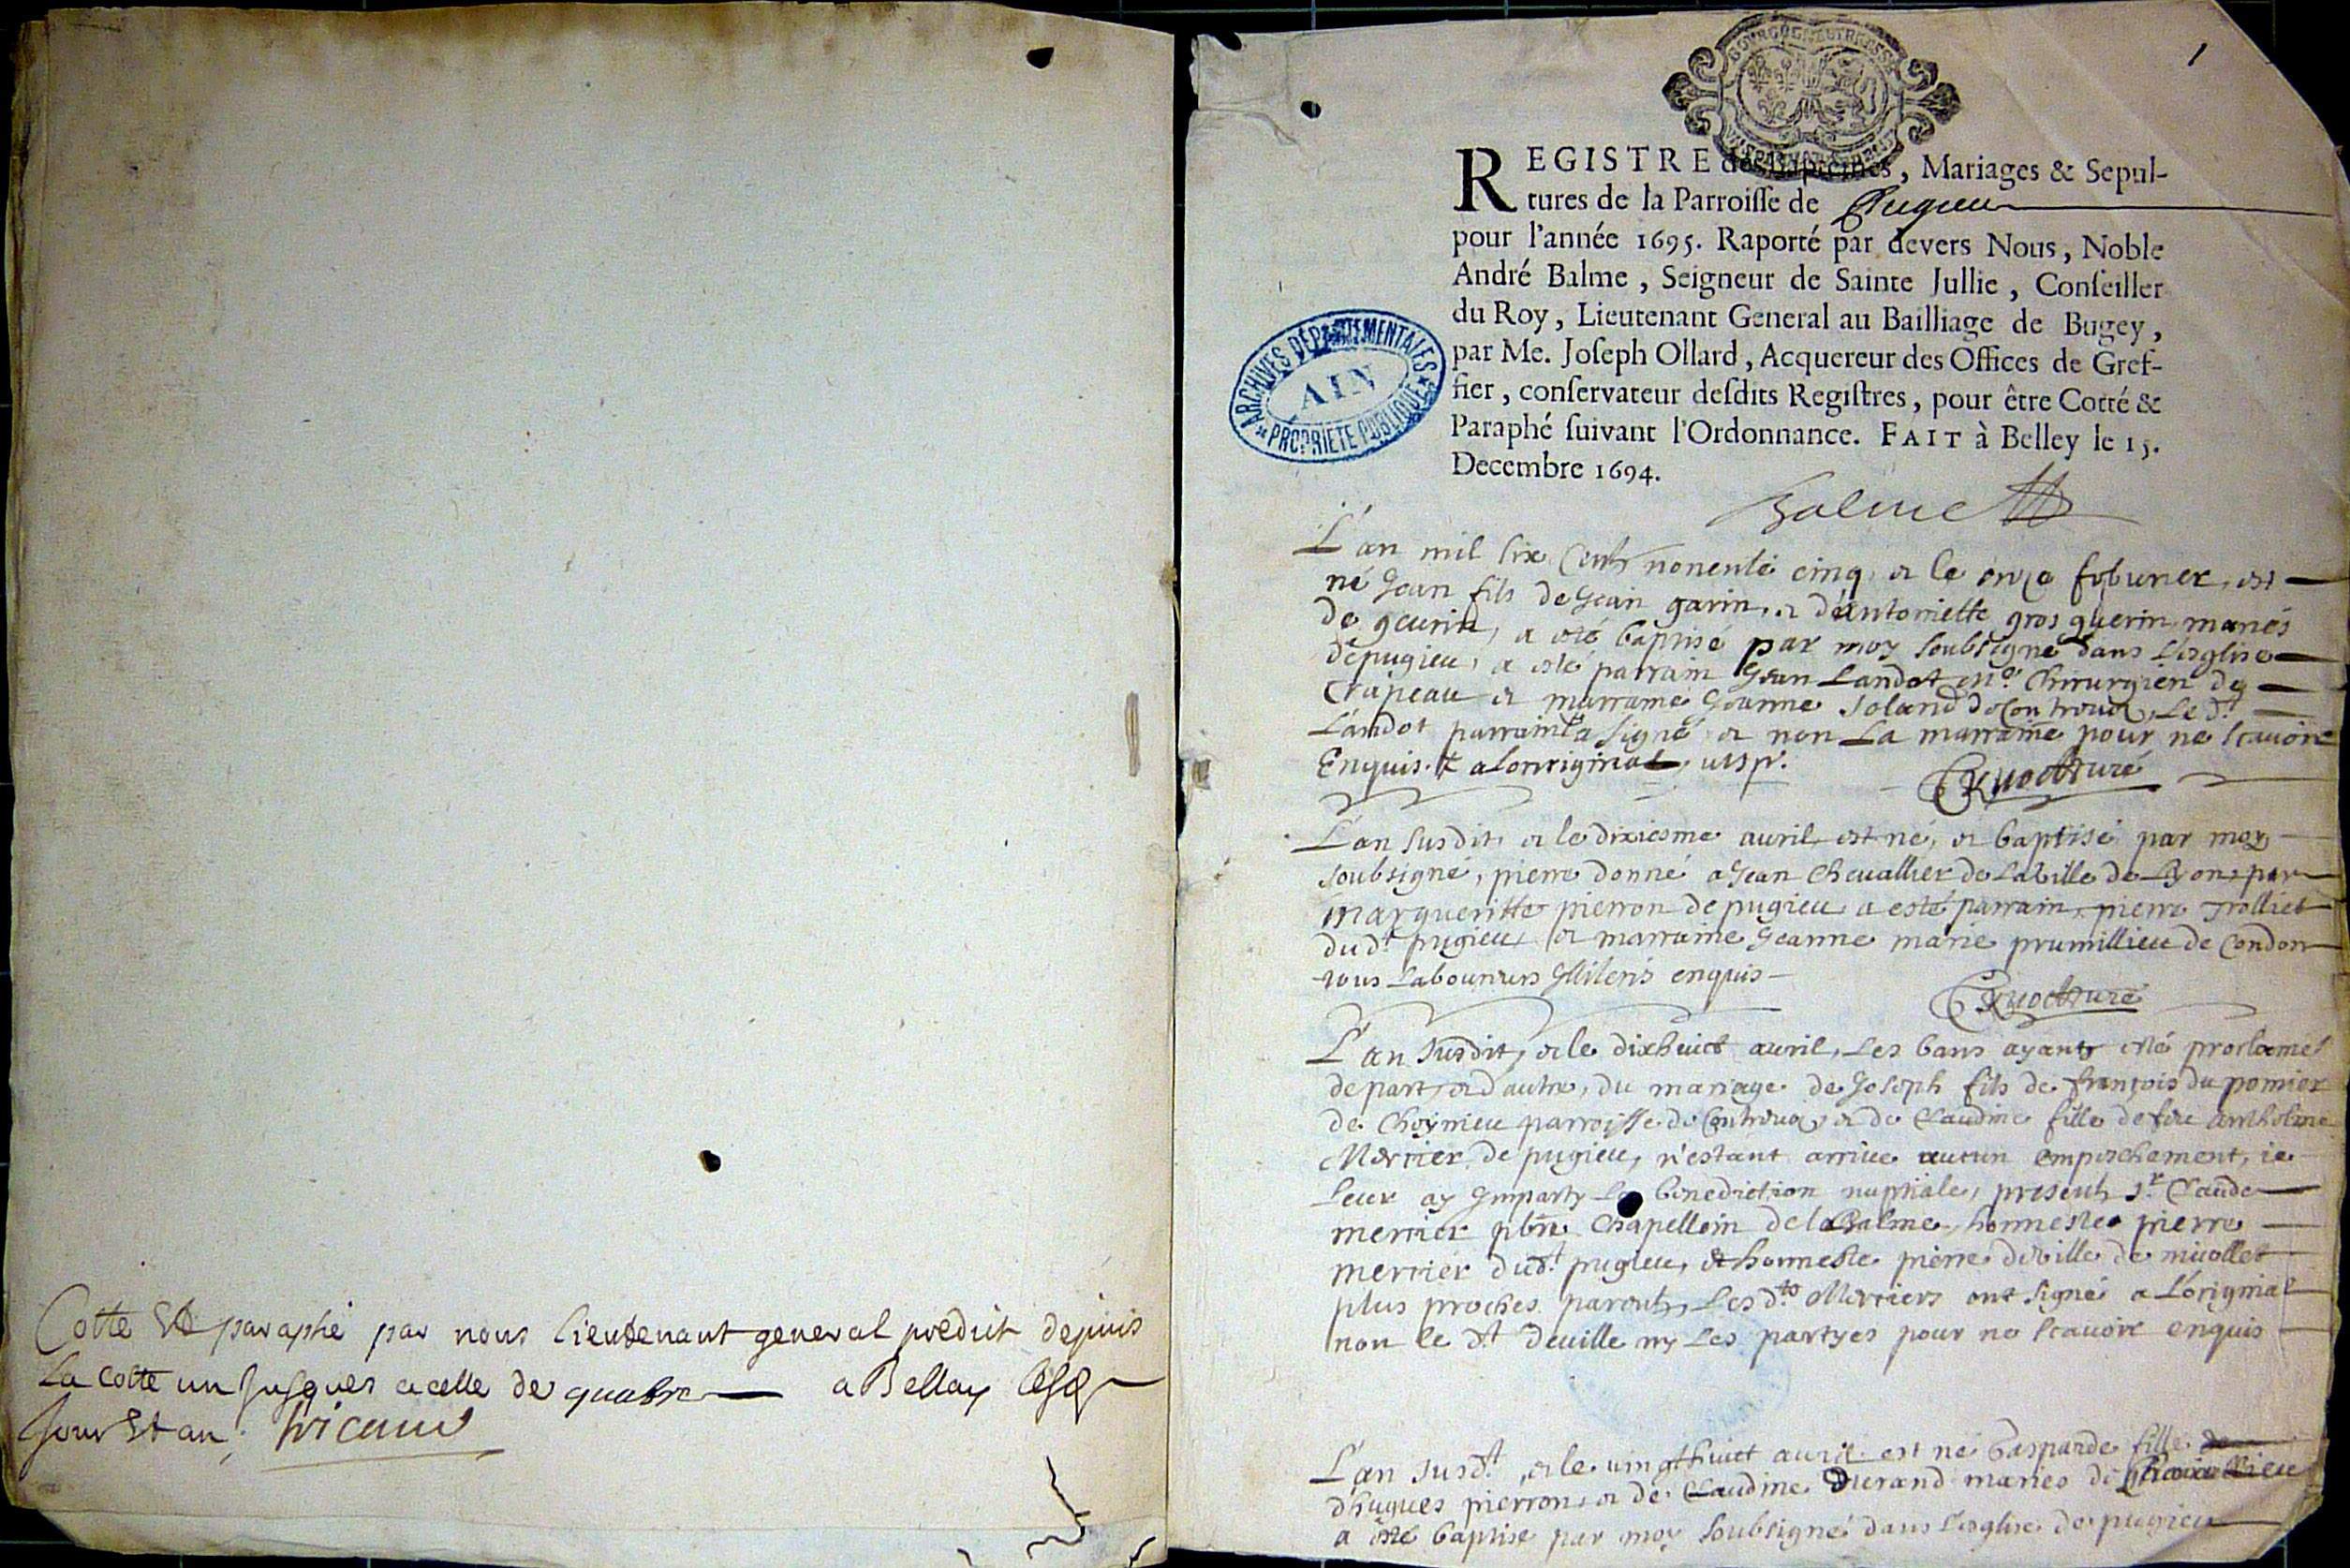 Cotte Et paraphé par nous lieutenant general predict depuis
La cotte un Jusques a celle de quatre a Belley
Jour Et an
1
REGISTRE des Baptêmes, Mariages & Sepul-
tures de la Parroisse de Pugieu
pour l'année 1695. Raporté par devers Nous, Noble
André Balme, Seigneur de Sainte Jullie, Conseiller
du Roy, Lieutenant General au Bailliage de Bugey,
par Me. Joseph Ollard, Acquereur des Offices de Gref-
fier, conservateur desdits Registres, pour être Cotté &
Paraphé suivant l'Ordonnance. FAIT à Belley le 15.
Decembre 1694.
ARCHIVES DÉPARTEMENTALES
AIN
PROPRIÉTÉ PUBLIQUE
Balme
L'an mil six Cents nonente cinq, et le onze febvrier, est
né Jean fils de Jean garin, et d'antoniette gros guerin mariés
de, a esté baptisé par moy soubsigné dans L'esglise
de pugieu, a esté parrain Jean Landot Chirurgien de
et marraine Jeanne Joland de Controuos, Le dt
Landot parrain a signé et non La marraine pour ne scavoir
Enquis a Lorriginal
L'an susdit, et le dixiesme avril, est né, et baptisé par moy
soubsigné, pierre donné a Jean Chevallier de La ville de Lyon par
margueritte pierron de pugieu a esté parrain pierre Trolliet
du dt pugieu, et marraine Jeanne marie prumillieu de Condon
tous Laboureurs Illiterés enquis
L'an susdit, et le dixhuict avril, Les bans ayants esté proclamés
de part, et d'autre, du mariage de Joseph fils de françois du pomier
de Choynieu parroisse de Controuos et de Claudine fille de feu Antholme
Mercier de pugieu, n'estant arrivé aucun empeschement, ie
Leur ay Imparty La benediction nuptiale, presents Sr. Claude
mercier pbre Chapellein de la Balme, honneste pierre
mercier du dt. pugieu, et honneste pierre deville de
plus proches parents, Les dts Merciers ont signé a L'original
non le dt deville ny Les partyes pour ne scavoir enquis
L'an susdt, et le vingthuict avril est né Gasparde fille
d'hugues pierron, et de Claudine Durand mariés de
a esté baptisé par moy soubsigné dans L'esglise de pugieu